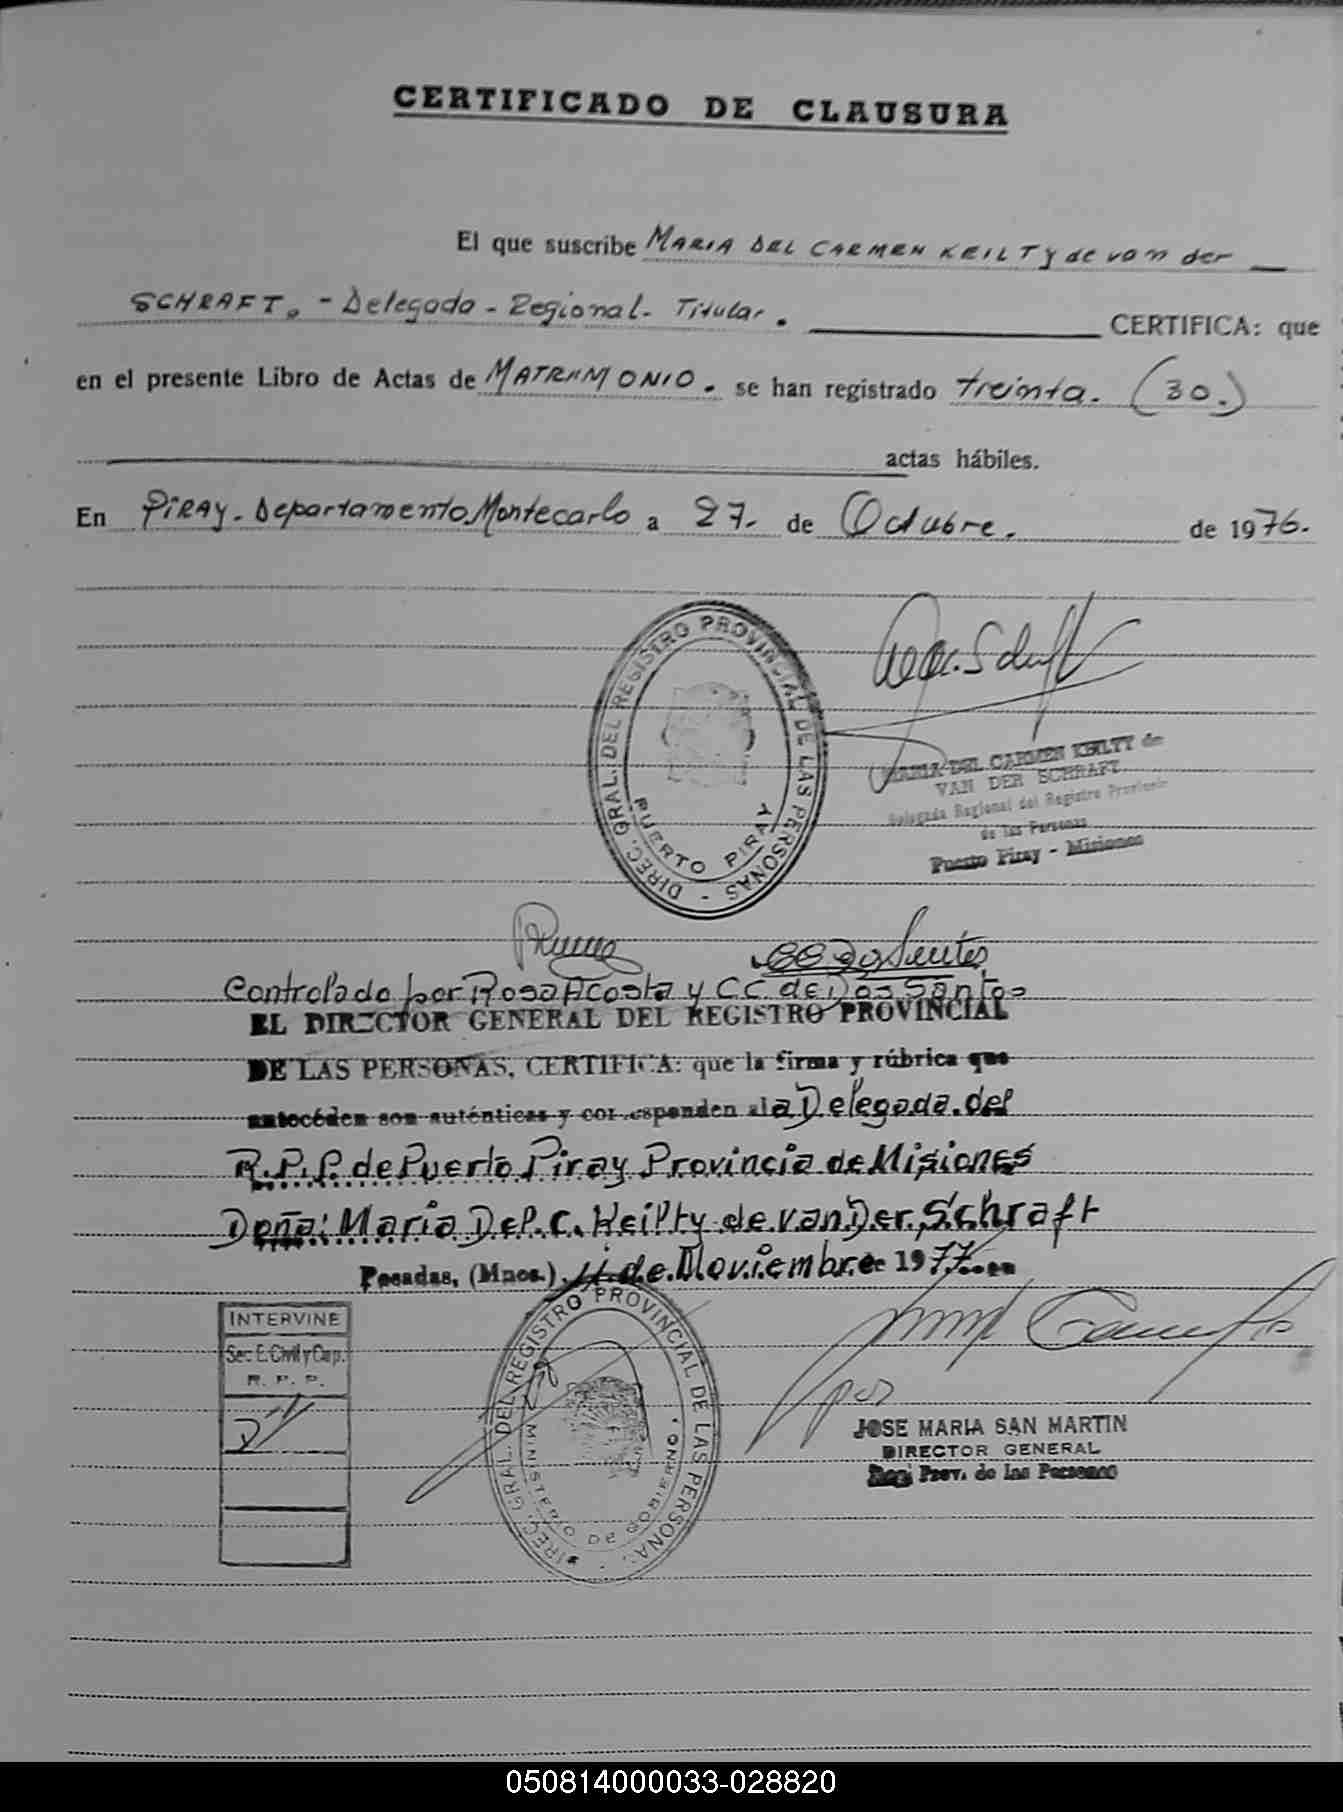 CERTIFICADO DE CLAUSURA
El que suscribe MARIA DEL CARMEN KEILTY de van der
SCHRAFT. - Delegada - Regional - Titular. CERTIFICA: que
en el presente Libro de Actas de MATRIMONIO. se han registrado treinta. (30.)
actas hábiles.
En PIRAY. Departamento Montecarlo a 27. de Octubre. de 1976.
DIREC. GRAL. DEL REGISTRO PROVINCIAL DE LAS PERSONAS -
PUERTO PIRAY
MARIA DEL CARMEN KEILTY de
VAN DER SCHRAFT
Delegada Regional del Registro Provincial
de las Personas
Puerto Piray - Misiones
Controlado por Rosa Acosta y C.C. de Dos Santos
EL DIRECTOR GENERAL DEL REGISTRO PROVINCIAL
DE LAS PERSONAS, CERTIFICA: que la firma y rúbrica que
antecéden son auténticas y corresponden al a Delegada. del
R.P.P. de Puerto Piray Provincia de Misiones
Doña: Maria Del. C. Keilty de van Der Schraft
Posadas, (Mnes.) 11 de Noviembre de 1977
INTERVINE
Sec. E. Civil y Cap.
R. P. P.
DIREC. GRAL. DEL REGISTRO PROVINCIAL DE LAS PERSONAS
MINISTERIO DE GOBIERNO
por
JOSE MARIA SAN MARTIN
DIRECTOR GENERAL
Regi Prov. de las Personas
050814000033-028820